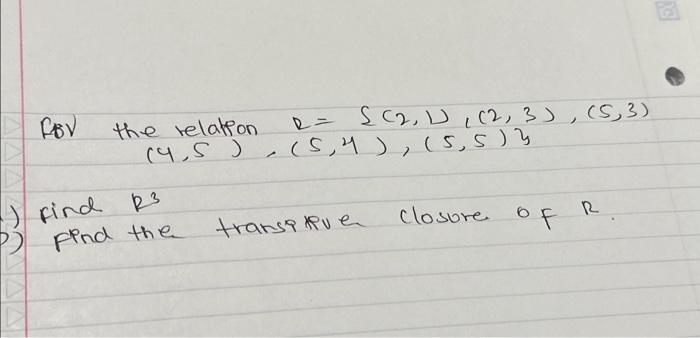 For the relation R = {(2,1), (2,3), (5,3)
(4,5), (5,4), (5,5)}
1) Find R³
2) Find the transitive closure of R.